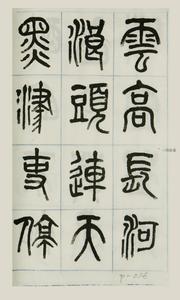 雲高長河
浪頭連天
黑津吏停